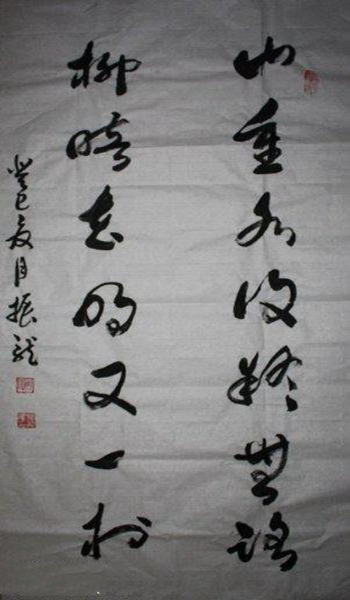 山重水復疑無路
柳暗花明又一村
癸巳夏月振龍